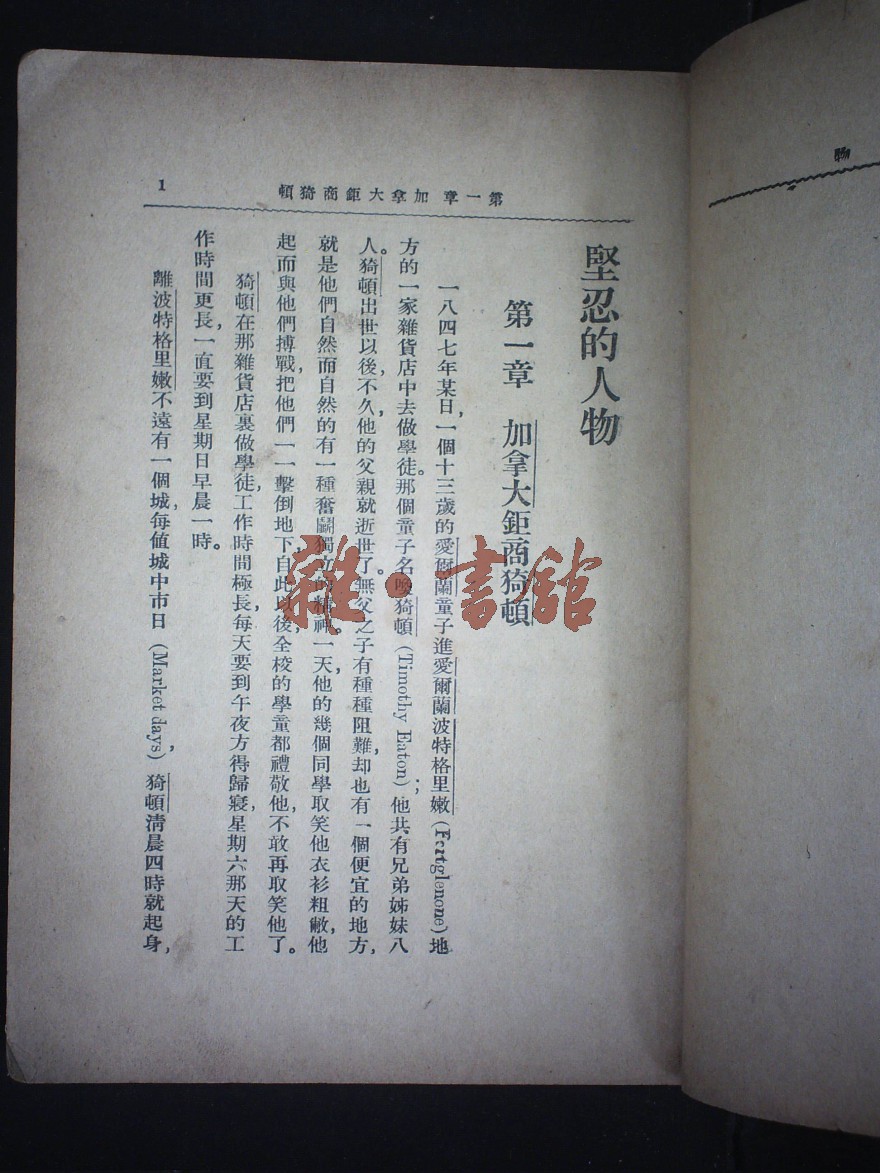 第一章 加拿大鉅商猗頓
1
堅忍的人物
第一章 加拿大鉅商猗頓
一八四七年某日，一個十三歲的愛爾蘭童子進愛爾蘭波特格里嫩(Portglenone)地
方的一家雜貨店中去做學徒。那個童子名喚猗頓(Timothy Eaton)；他共有兄弟姊妹八
人。猗頓出世以後，不久他的父親就逝世了。無父之子有種種阻難，却也有一個便宜的地方，
就是他們自然而自然的有一種奮鬭獨立的精神。一天，他的幾個同學取笑他衣衫粗敝，他
起而與他們搏戰，把他們一一擊倒地下，自此以後，全校的學童都禮敬他，不敢再取笑他了。
猗頓在那雜貨店裏做學徒，工作時間極長，每天要到午夜方得歸寢，星期六那天的工
作時間更長，一直要到星期日早晨一時。
離波特格里嫩不遠有一個城，每値城中市日(Market days)，猗頓清晨四時就起身，
物
雜·書館